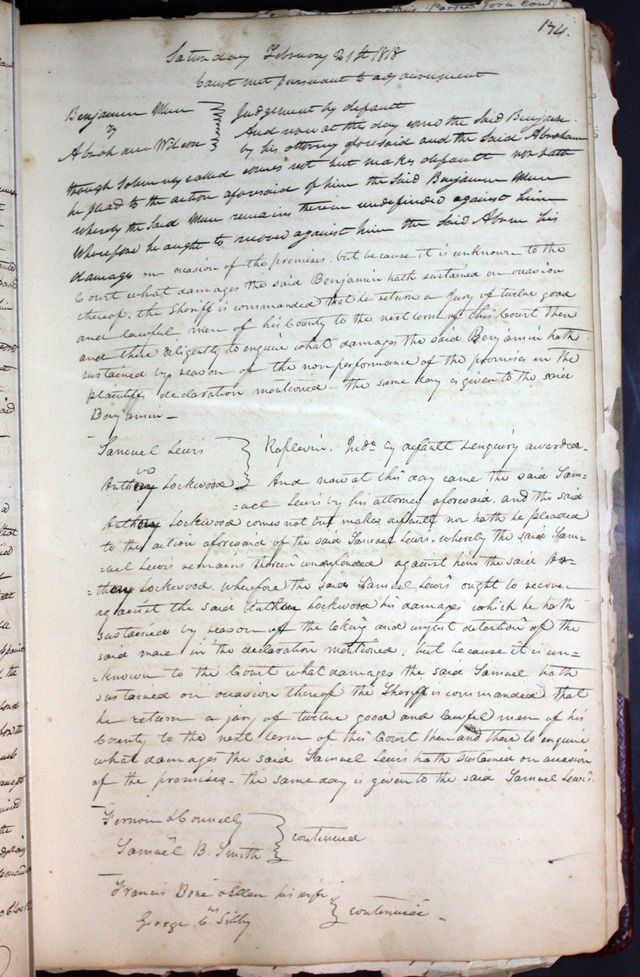 174.
Saturday February 21st 1818
Court met pursuant to adjournment
Benjamin Muir } Judgement by default
v } And now at this day came the said Benjamin
Abraham Wilson } by his attorney aforesaid and the said Abraham
though Solemnly called comes not but makes default nor hath
he plead to the action aforesaid of him the said Benjamin Muir
whereby the said Muir remains therein undefended against him
Wherefore he ought to recover against him the said Abram his
damages on occasion of the premises. but because it is unknown to the
Court what damages the said Benjamin hath sustained on occasion
thereof, the Sheriff is commanded that he return a Jury of twelve good
and lawful men of his County to the next term of this Court then
and there diligently to enquire what damages the said Benjamin hath
sustained by reason of the nonperformance of the promises in the
plaintiffs declaration mentioned - the same day is given to the said
Benjamin -
Samuel Lewis } Replevin. Judt. by default & enquiry awarded -
vs } And now at this day came the said Sam-
Anthony Lockwood } =uel Lewis by his attorney aforesaid. and the said
Anthony Lockwood comes not but makes default nor hath he pleaded
to the action aforesaid of the said Samuel Lewis. whereby the said Sam-
=uel Lewis remains therein undefended against him the said An-
=thony Lockwood. Wherefore the said Samuel Lewis ought to recover
against the said Lockwood his damages which he hath
sustained by reason of the taking and unjust detention of the
said mare in the declaration mentioned. but because it is un=
=known to the Court what damages the said Samuel hath
sustained on occasion thereof the Sheriff is commanded that
he return a jury of twelve good and lawful men of his
County to the next term of this Court then and there to enquire
what damages the said Samuel Lewis hath sustained on occasion
of the premises - the same day is given to the said Samuel Lewis.
Vernon & Connelly } continued
Samuel B. Smith }
Francis Bosé & Ellen his wife } continued -
vs
George C. Silly